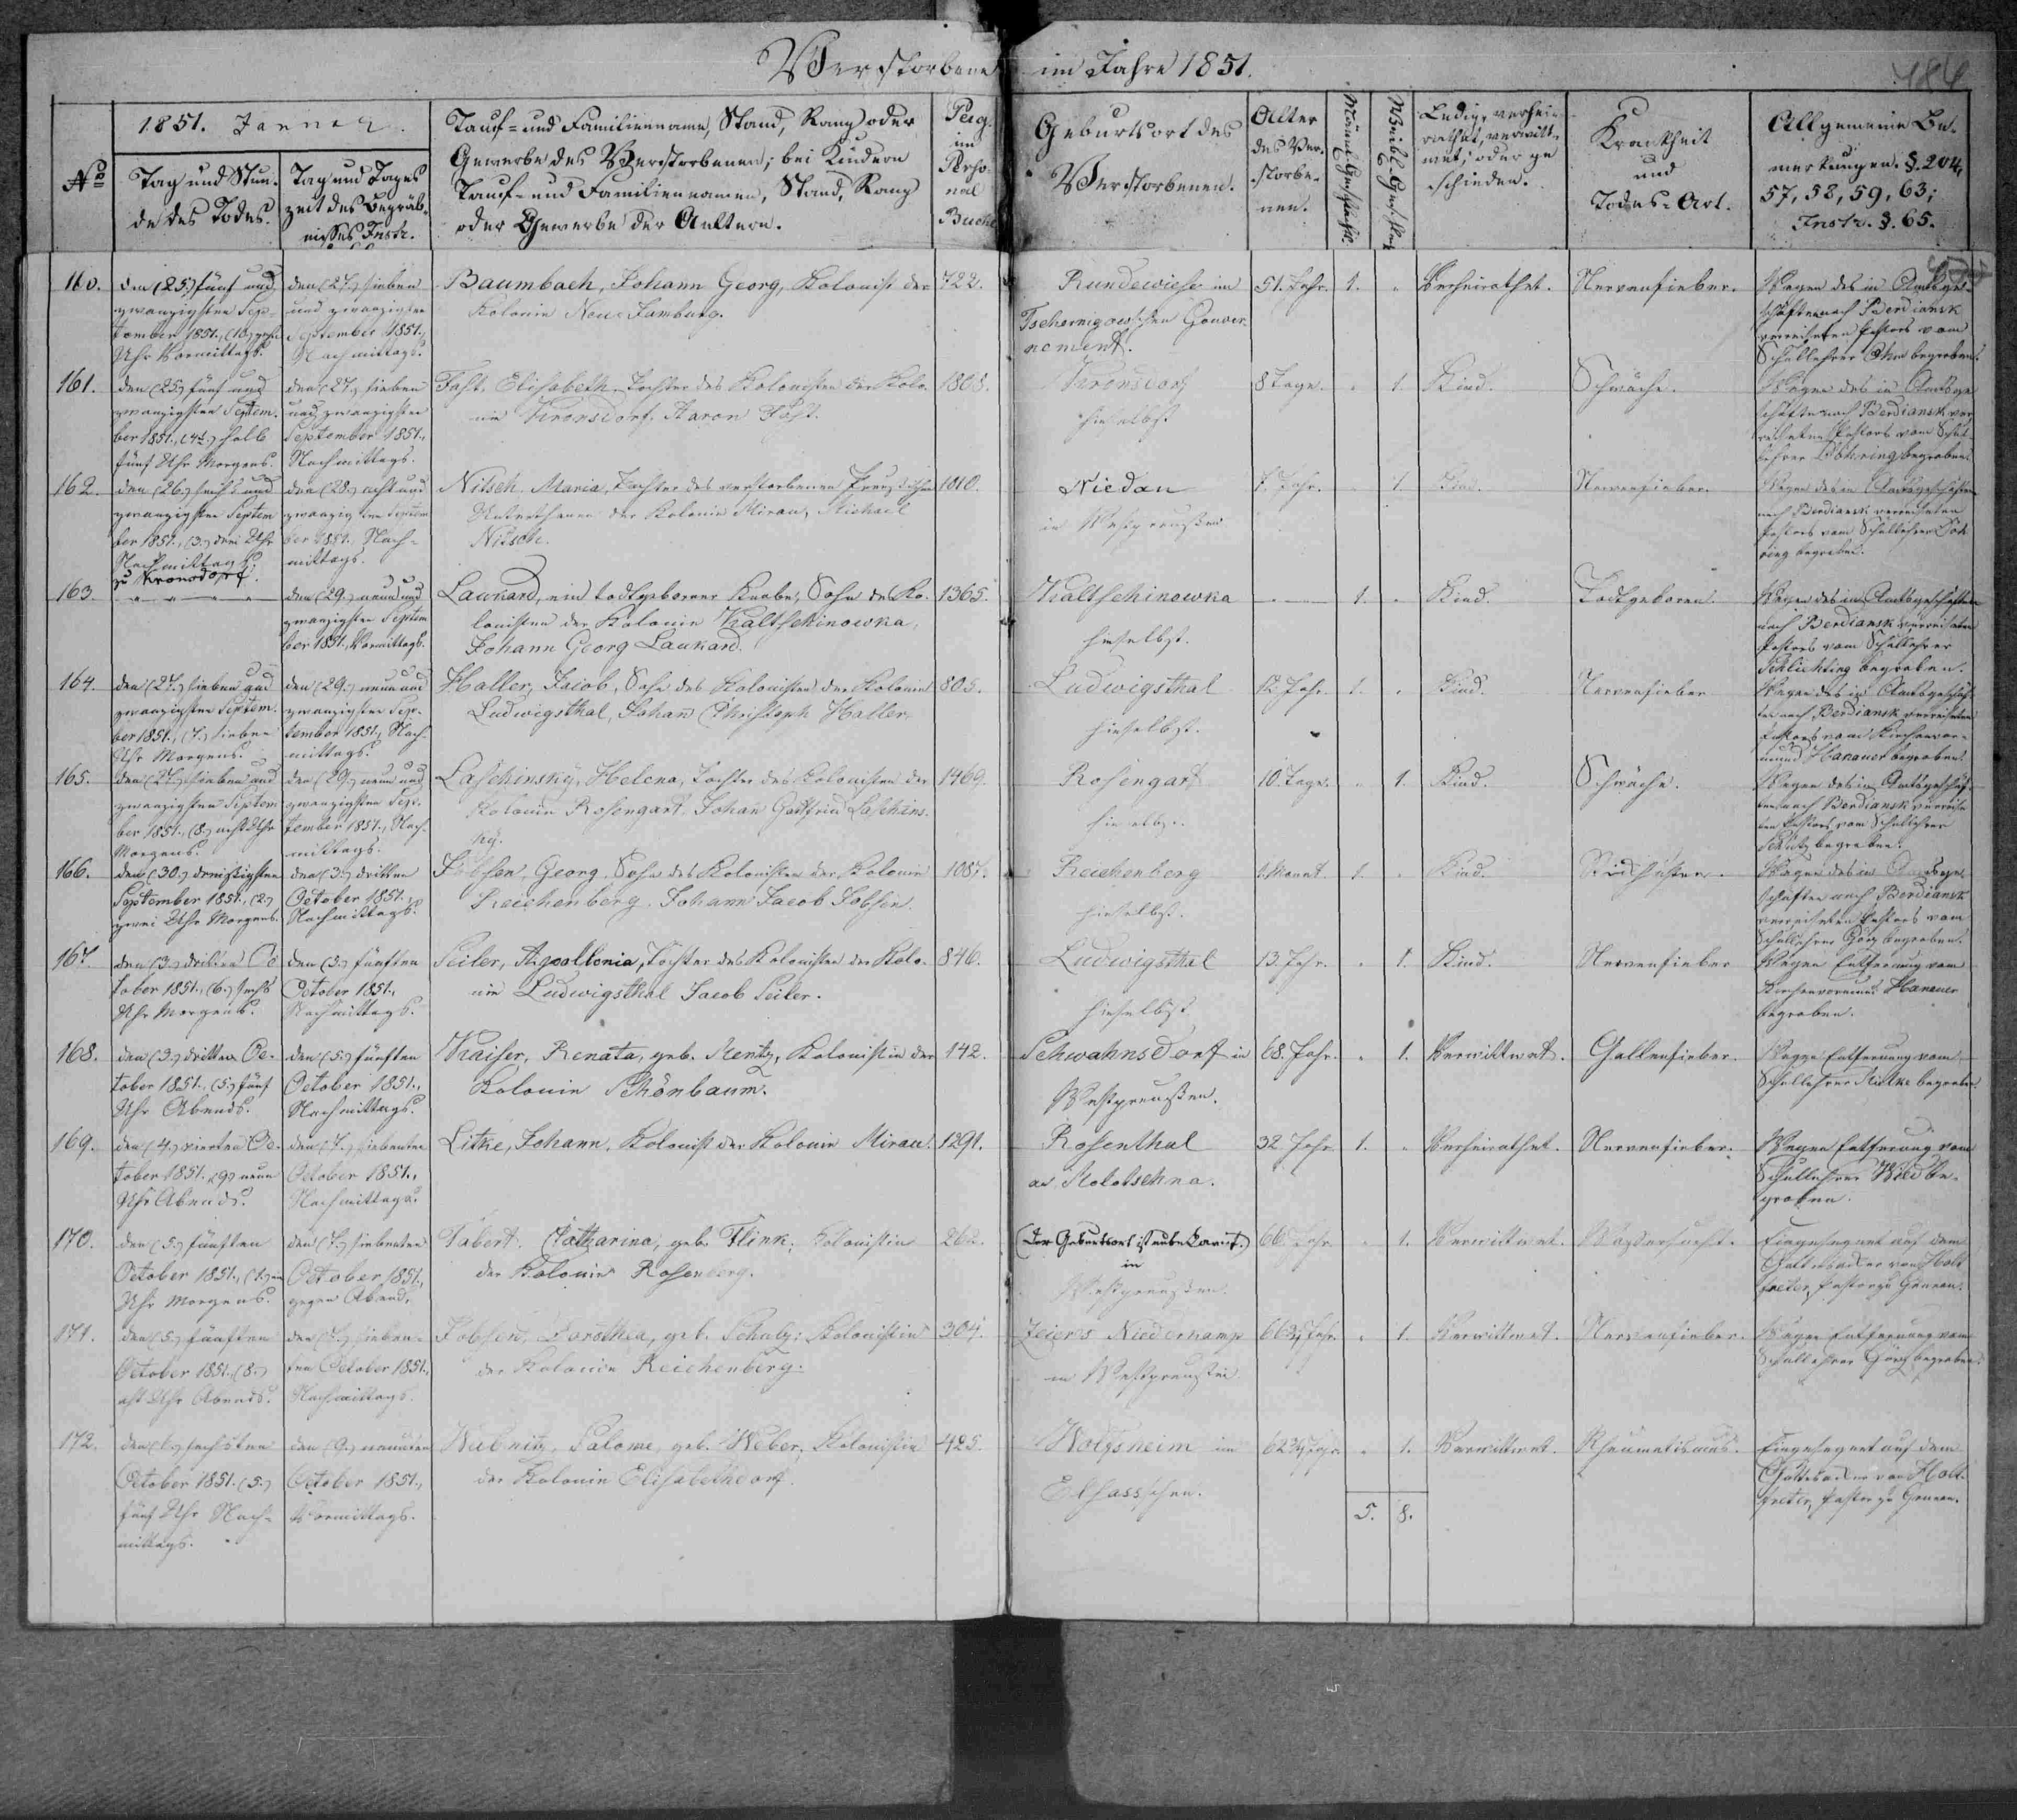 Verstorbene im Jahre 1851.
184
1851. Januar.
No
Tag und Stunde des Todes.
Tag und Tageszeit des Begräbnisses Instr.
Tauf- und Familienname, Stand, Rang oder
Gewerbe des Verstorbenen; bei Kindern
Tauf- und Familiennamen, Stand, Rang
oder Gewerbe der Aeltern.
Pag.
im
Perso-
nal
Buche
Geburtsort des
Verstorbenen.
Alter
des Ver-
storbe-
nen.
Männl. Geschlecht.
Weibl. Geschlecht
Ledig, verhei-
rathet, verwitt-
wet, oder ge
schieden.
Krankheit
und
Todes-Art.
Allgemeine Be-
merkungen. §. 204,
57, 58, 59, 63;
Instr. §. 65.
160.
den (25.) fünf und
zwanzigsten Sep-
tember 1851., (10.) zehn
Uhr Vormittags.
den (27.) sieben
und zwanzigsten
September 1851.,
Nachmittags.
Baumbach, Johann Georg, Kolonist der
Kolonie Neu-Jamburg.
722.
Rundewiese im
Tschernigowschen Gouver-
nement.
51. Jahr. 1. "
Verheirathet.
Nervenfieber.
Wegen des in Amtsge-
schäften nach Berdiansk
verreiseten Pastors vom
Schullehrer begraben.
161.
den (25.) fünf und
zwanzigsten Septem-
ber 1851., (4½.) halb
fünf Uhr Morgens.
den (27.) sieben
und zwanzigsten
September 1851.,
Nachmittags.
Fast, Elisabeth, Tochter des Kolonisten der Kolo-
nie Kronsdorf, Aaron Fast.
1808.
Kronsdorf
hieselbst
8 Tage. " 1.
Kind.
Schwäche.
Wegen des in Amtsge
schäften nach Berdiansk ver
reiseten Pastors vom Schul-
lehrer Döhring begraben.
162.
den (26.) sechs und
zwanzigsten Septem
ber 1851., (3.) drei Uhr
Nachmittags.
zu Kronsdorf.
den (28.) acht und
zwanzigsten Septem
ber 1851., Nach-
mittags.
Nitsch, Maria, Tochter des verstorbenen Preußischen
Unterthanen der Kolonie Mirau, Michael
Nitsch.
1010.
Niedau
in Westpreußen
7. Jahr. " 1.
Kind.
Nervenfieber.
Wegen des in Amtsgeschäften
nach Berdiansk verreiseten
Pastors vom Schullehrer Döh
ring begraben.
163.
" " " "
den (29.) neun und
zwanzigsten Septem
ber 1851., Vormittags.
Laukard, ein todtgeborner Knabe, Sohn des Ko-
lonisten der Kolonie Kaltschinowka,
Johann Georg Laukard.
1365.
Kaltschinowka
hieselbst.
" 1. "
Kind.
Todtgeboren.
Wegen des in Amtsgeschäften
nach Berdiansk verreiseten
Pastors vom Schullehrer
Schlichting begraben.
164.
den (27.) sieben und
zwanzigsten Septem-
ber 1851., (7.) sieben
Uhr Morgens.
den (29.) neun und
zwanzigsten Sep-
tember 1851., Nach-
mittags.
Haller, Jacob, Sohn des Kolonisten der Kolonie
Ludwigsthal, Johann Christoph Haller.
805.
Ludwigsthal
hieselbst.
12. Jahr. 1. "
Kind.
Nervenfieber
Wegen des in Amtsgeschäf
ten nach Berdiansk verreiseten
Pastors vom Kirchenvor-
mund Hanauer begraben.
165.
den (27.) sieben und
zwanzigsten Septem
ber 1851., (8.) acht Uhr
Morgens.
den (29.) neun und
zwanzigsten Sep-
tember 1851., Nach-
mittags.
Laschinsky, Helena, Tochter des Kolonisten der
Kolonie Rosengart, Johann Gottfried Laschins-
ky.
1469.
Rosengart
hieselbst.
10. Tage. " 1.
Kind.
Schwäche.
Wegen des in Amtsgeschäf-
ten nach Berdiansk verreise
ten Pastors vom Schullehrer
Schütz begraben.
166.
den (30.) dreißigsten
September 1851., (2.)
zwei Uhr Morgens.
den (3.) dritten
October 1851.,
Nachmittags.
Jobsen, Georg, Sohn des Kolonisten der Kolonie
Reichenberg, Johann Jacob Jobsen.
1087.
Reichenberg
hieselbst.
1. Monat. 1. "
Kind.
Stickhusten.
Wegen des in Amtsge-
schäften nach Berdiansk
verreiseten Pastors vom
Schullehrer Görz begraben.
167.
den (3.) dritten Oc
tober 1851., (6.) sechs
Uhr Morgens.
den (5.) fünften
October 1851.,
Nachmittags.
Seiler, Apollonia, Tochter des Kolonisten der Kolo-
nie Ludwigsthal Jacob Seiler.
846.
Ludwigsthal
hieselbst
13. Jahr. " 1.
Kind.
Nervenfieber
Wegen Entfernung vom
Kirchenvormund Hanauer
begraben.
168.
den (3.) dritten Oc-
tober 1851., (5.) fünf
Uhr Abends.
den (5.) fünften
October 1851.,
Nachmittags.
Kaiser, Renata, geb. Mentz, Kolonistin der
Kolonie Schönbaum.
142.
Schwahnsdorf in
Westpreußen.
68. Jahr. " 1.
Verwittwet.
Gallenfieber.
Wegen Entfernung vom
Schullehrer begraben.
169.
den (4.) vierten Oc-
tober 1851. (9.) neun
Uhr Abends.
den (7.) siebenten
October 1851.,
Nachmittags.
Litke, Johann, Kolonist der Kolonie Mirau.
1291.
Rosenthal
an Molotschna.
32. Jahr. 1. "
Verheirathet.
Nervenfieber.
Wegen Entfernung vom
Schullehrer Wied be-
graben.
170.
den (5.) fünften
October 1851., (1.) ein
Uhr Morgens.
den (7.) siebenten
October 1851.,
gegen Abend.
Tabert, Catharina, geb. Flink, Kolonistin
der Kolonie Rosenberg.
262.
(Der Geburtsort ist unbekannt.)
in
Westpreußen.
66. Jahr. " 1.
Verwittwet.
Wassersucht.
Eingesegnet auf dem
Gottesacker von Holt
freter, Pastor zu Grunau.
171.
den (5.) fünften
October 1851. (8.)
acht Uhr Abends.
den (7.) sieben-
ten October 1851.,
Nachmittags.
Jobsen, Dorothea, geb. Schulz, Kolonistin
der Kolonie Reichenberg.
304.
Zeiers Niederkamp
in Westpreußen
66¾ Jahr. " 1.
Verwittwet.
Nervenfieber.
Wegen Entfernung vom
Schullehrer Görz begraben.
172.
den (6.) sechsten
October 1851. (5.)
fünf Uhr Nach-
mittags.
den (9.) neunten
October 1851.,
Vormittags.
Wubnitz, Salome, geb. Weber, Kolonistin
der Kolonie Elisabethdorf.
425.
Wolfsheim im
Elsassschen.
62¾ Jahr. " 1.
Verwittwet.
Rheumatismus.
Eingesegnet auf dem
Gottesacker von Holt-
freter, Pastor zu Grunau.
5. 8.